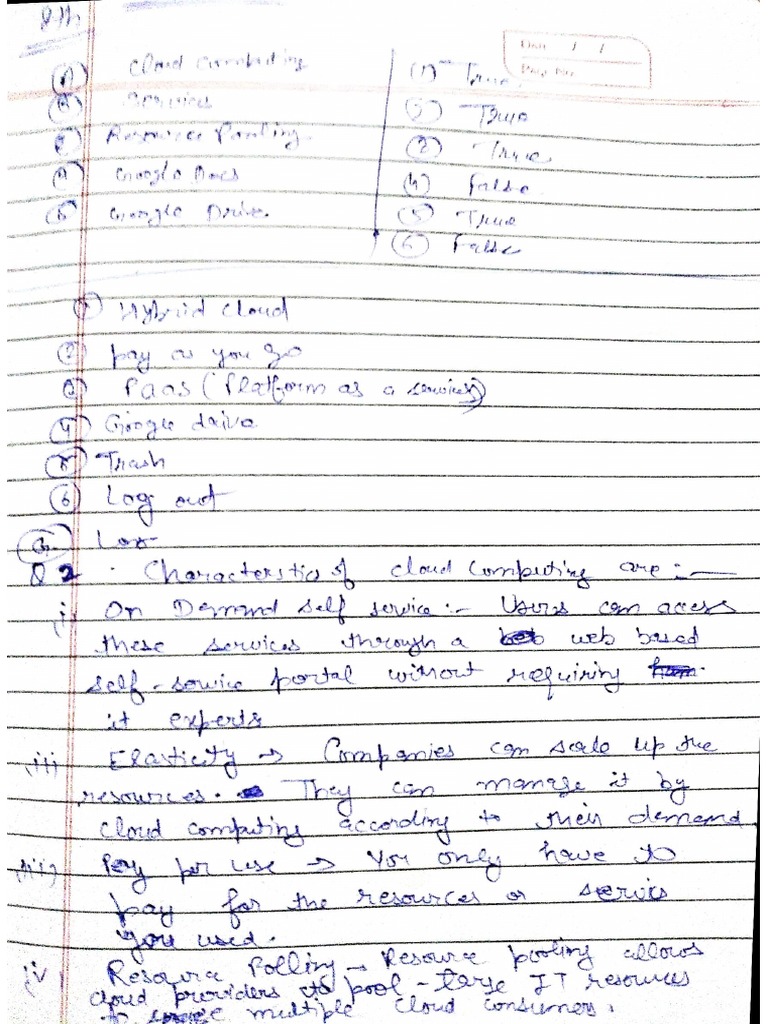 8th
Date / /
Page No.
(1) Cloud Computing
(2) Services
(3) Resource Pooling.
(4) Google Docs
(5) Google Drive.
(1) True
(2) True
(3) True
(4) False
(5) True
(6) False
(1) Hybrid cloud
(2) pay as you go
(3) PaaS (Platform as a services)
(4) Google drive
(5) Trash
(6) Log out
Q2 . Characterstics of cloud computing are :-
(i) On Demand self service :- Users can access
these services through a web based
self-service portal without requiring
it experts
(ii) Elasticity → Companies can scale up the
resources. They can manage it by
cloud computing according to their demand
(iii) Pay per use → You only have to
pay for the resources or servics
you used.
iv Resource Polling → Resource pooling allows
cloud providers to pool - large IT resources
to multiple cloud consumers.